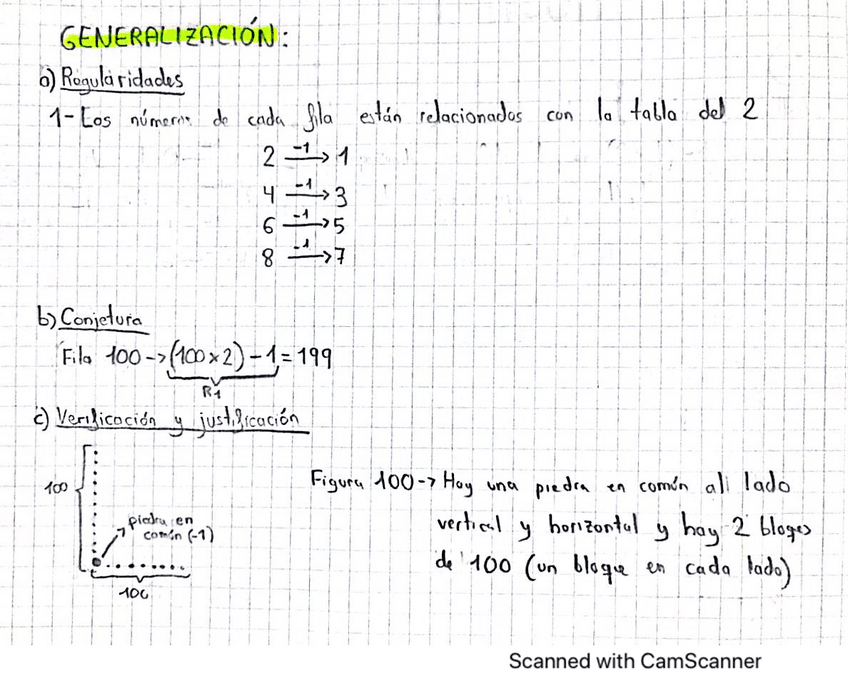 GENERALIZACIÓN:
a) Regularidades
1- Los números de cada fila están relacionados con la tabla del 2
2 -1→ 1
4 -1→ 3
6 -1→ 5
8 -1→ 7
b) Conjetura
Fila 100 -> (100x2) - 1 = 199
R1
c) Verificación y justificación
100
piedra en
común (-1)
100
Figura 100 -> Hay una piedra en común al lado
vertical y horizontal y hay 2 bloques
de 100 (un bloque en cada lado)
Scanned with CamScanner